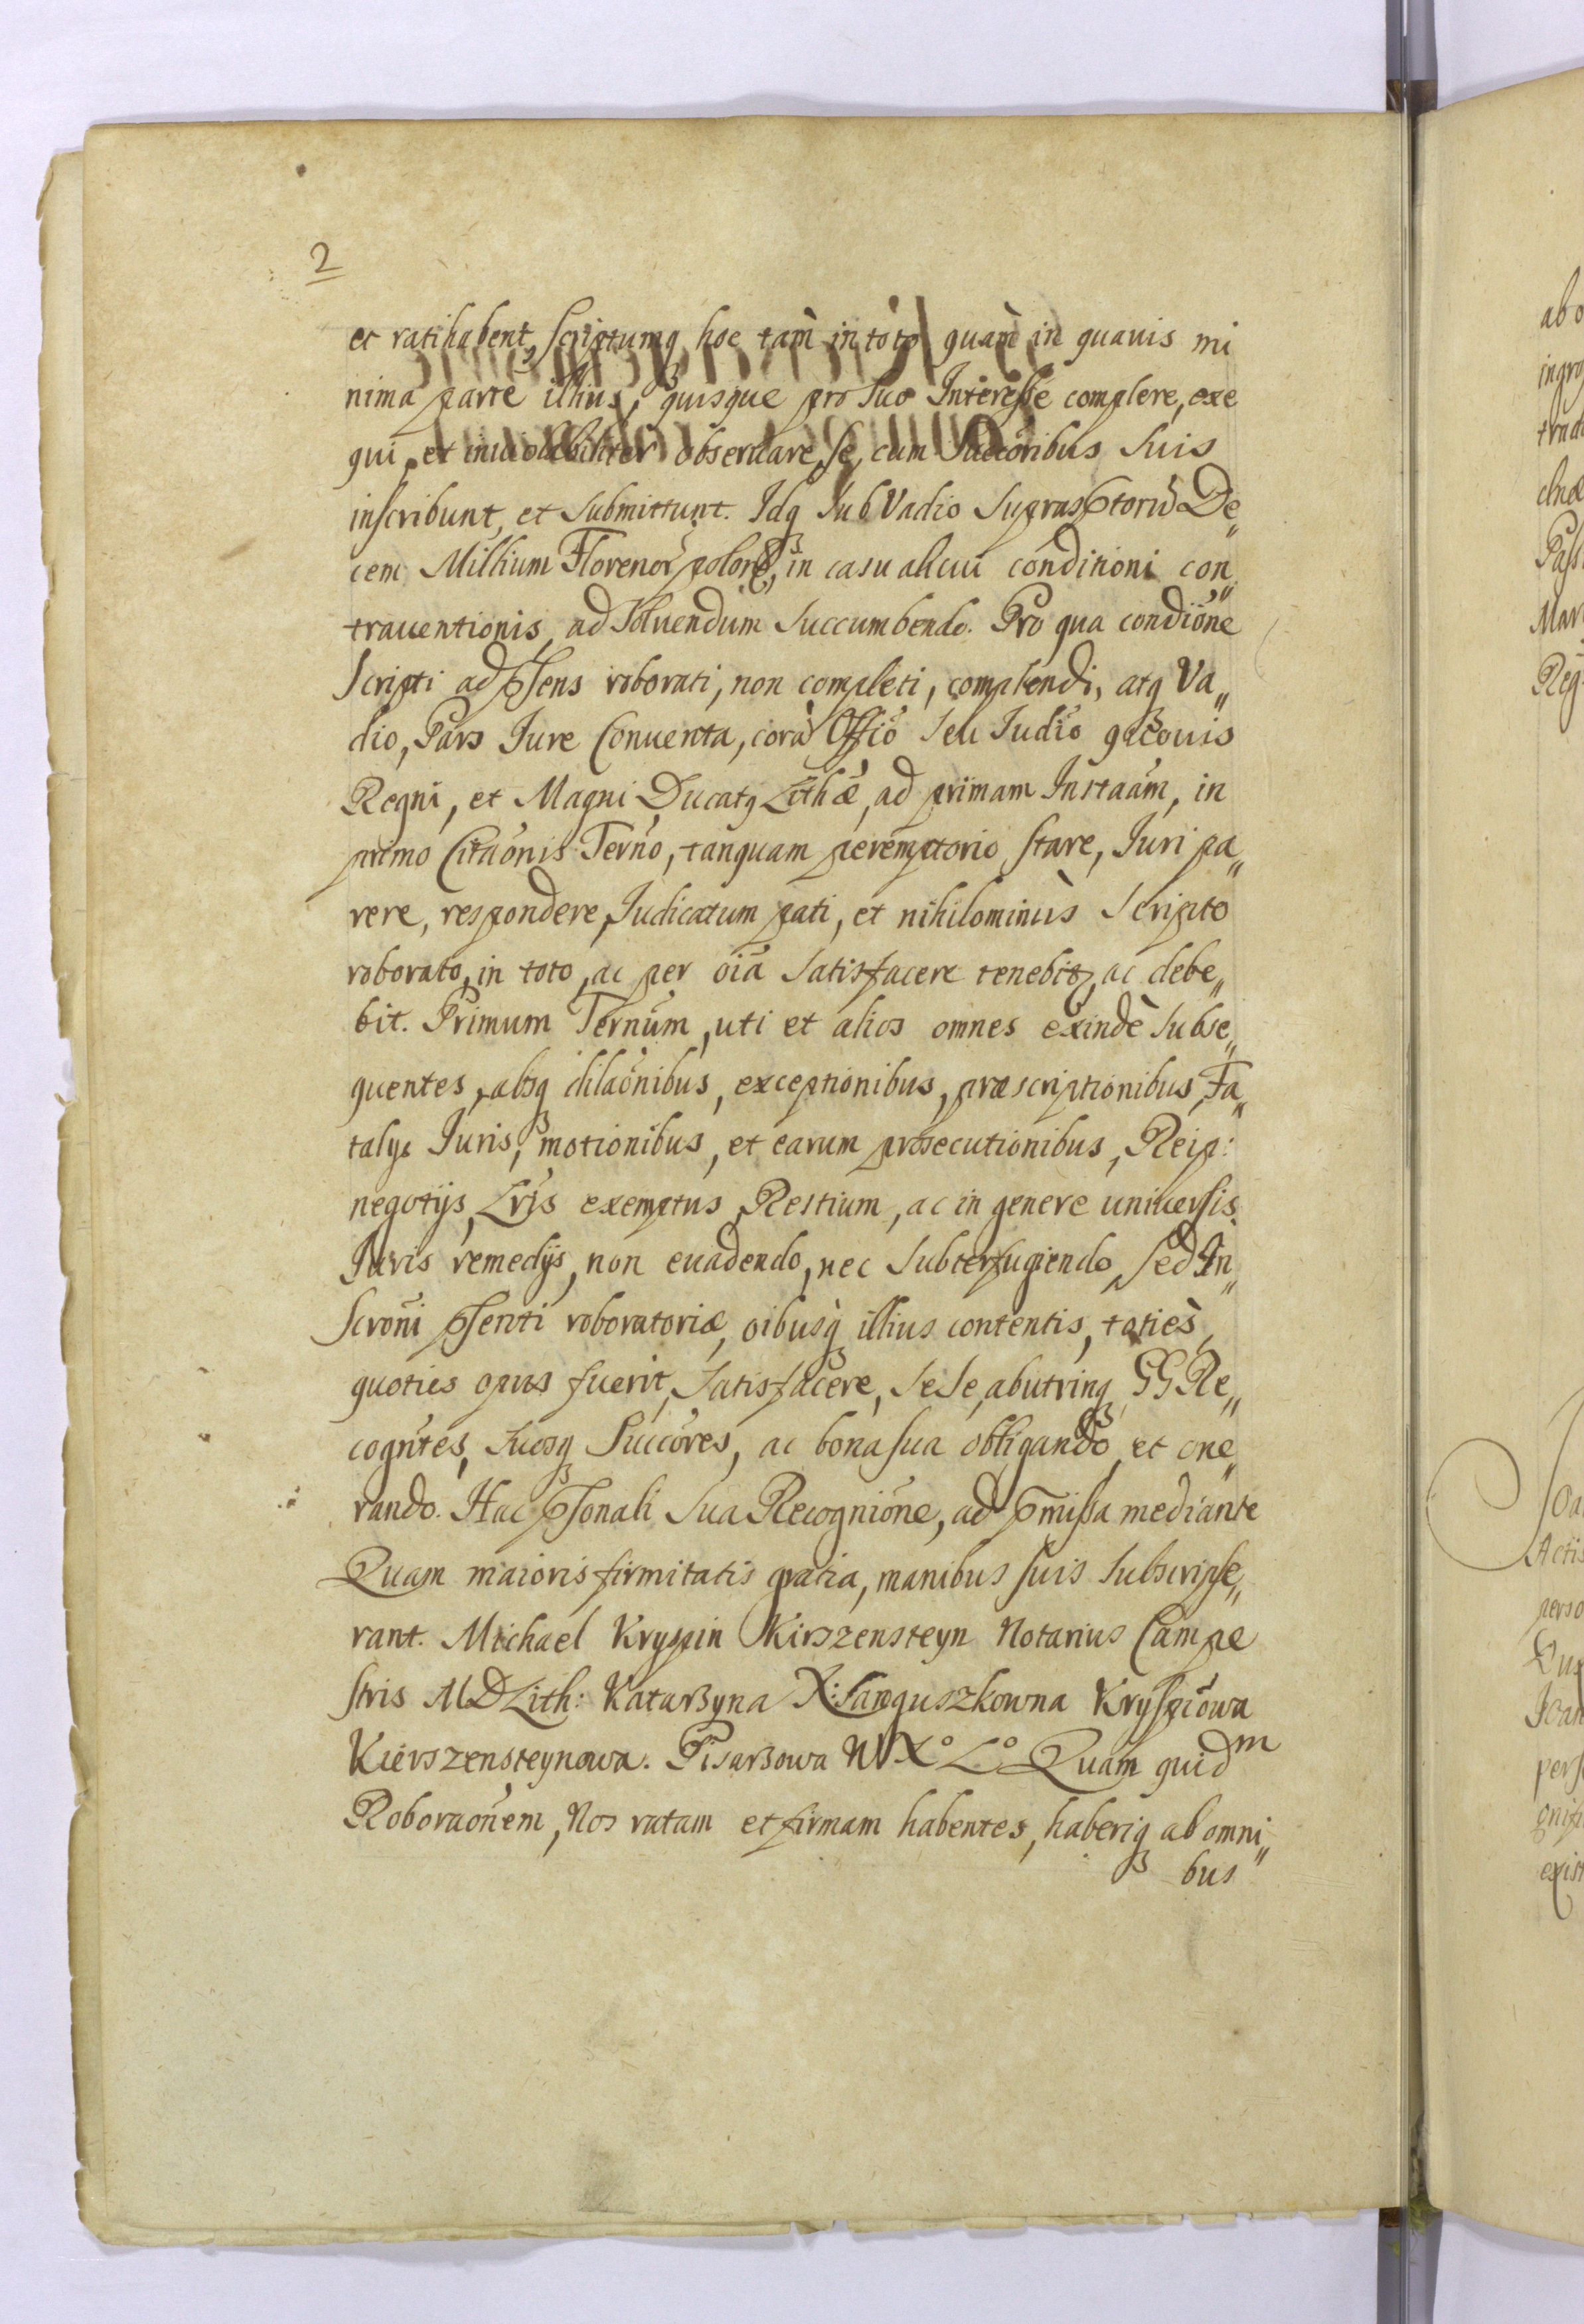 2
et ratihabent, scriptumq hoc tam̀ in toto quam̀ in quauis mi
nima parte illius, quisque pro suo Interesse complere, exe
qui, et inuiolabiliter obseruare, se, cum Succoribus suis
inscribunt, et submittunt. Idq sub Vadio supras͠ptorū De„
cem Millium Florenor̃ polon̄, in casu alicui conditioni con„
trauentionis, ad soluendum succumbendo. Pro qua condiōne
Scripti ad p͠sens roborati, non completi, complendi, atq Va„
dio, Pars Iure Conuenta, corā Offiō seu Iudiō qūcouis
Regni, et Magni Ducatq Lith͞æ, ad primam Instaām, in
primo Citaōnis Ternō, tanquam peremptorio stare, Iuri pa„
rere, respondere, Iudicatum pati, et nihilominùs Scripto
roborato, in toto, ac per oīa satisfacere tenebit͠, ac debe„
bit. Primum Ternūm, uti et alios omnes exindè subse„
quentes, absq dilaōnibus, exceptionibus, præscriptionibus, Fa„
talys Iuris, motionibus, et earum prosecutionibus, Reip:
negotijs, Lrīs exemptus, Restium, ac in genere uniuersis
Iuris remedijs, non euadendo, nec subterfugiendo, sed In„
scrōni p͠senti roboratoriæ, oibusq̀ illius contentis, totiès,
quoties opus fuerit, satisfacere, sese, abutrinq GG Re„
cogn̄tes, suosq Succōres, ac bona sua obligando, et one„
rando. Hac p͠sonali sua Recogniōne, ad p͠missa mediante
Quam maioris firmitatis gratia, manibus suis subscripse„
rant. Michael Kryspin Kirszensteyn Notarius Campe
stris MDLith: Katarzyna X: Sanguszkowna Kryspiōwa
Kierszensteynowa. Pisarzowa WX° L° Quam quidm
Roboraōnem, Nos ratam et firmam habentes, haberiq ab omni„
bus